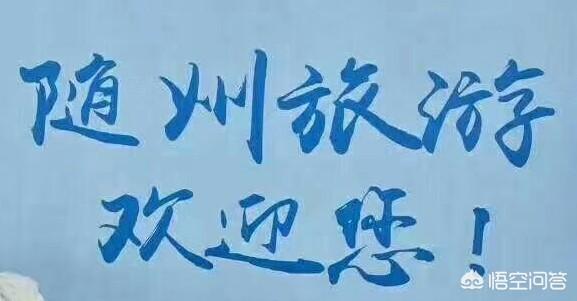 随州旅游
欢迎您！
悟空问答